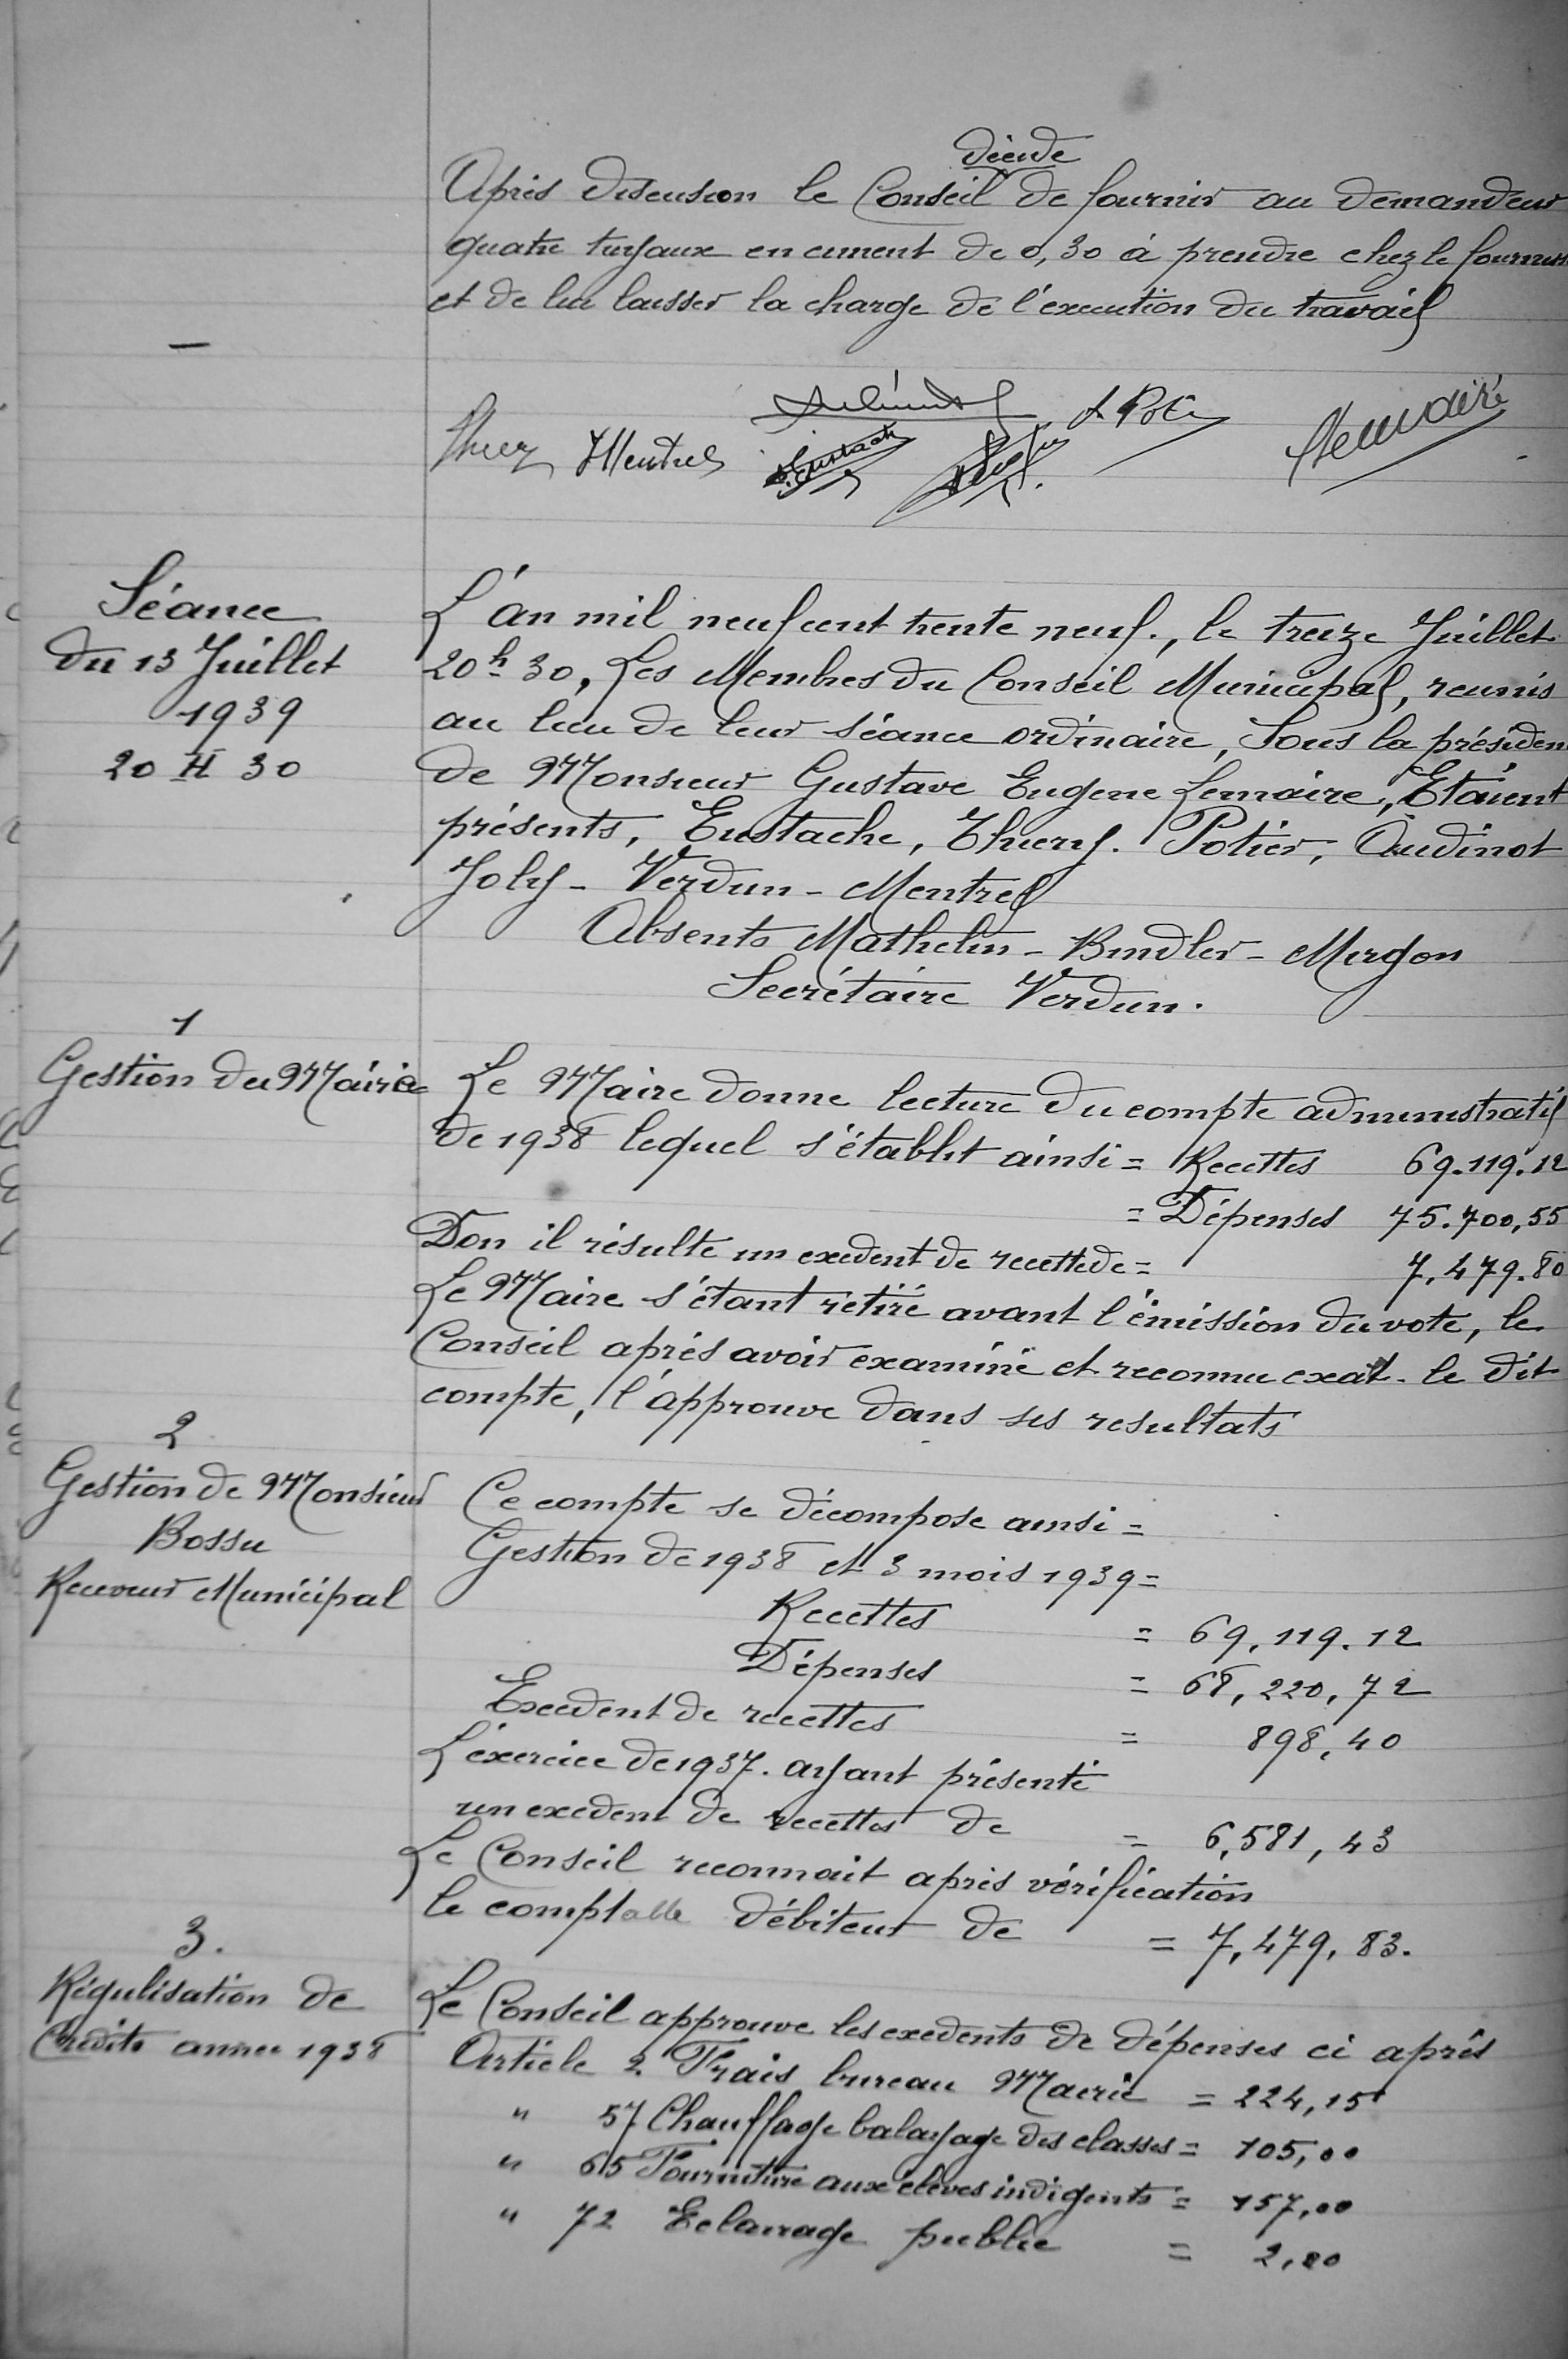 décide
Après discussion le Conseil de fournir au demandeur
quatre tuyaux en ciment de 0,30 à prendre chez le fourniss
et de lui laisser la charge de l'execution du travail
—
Thiery JMentrel Eustache A Potier GLemaire
Séance
du 13 Juillet
1939
20 H 30
L'an mil neuf cent trente neuf., le treize Juillet
20h 30, Les Membres du Conseil Municipal, reunis
au lieu de leur séance ordinaire, Sous la présiden
de Monsieur Gustave Eugene Lemaire, Etaient
présents, Eustache, Thiery. Potier, Audinot
Joly - Verdun - Mentrel
Absents Mathelin - Bindler - Mergon
Secrétaire Verdun.
1
Gestion du Mairie
Le Maire donne lecture du compte administratif
de 1938 lequel s'établit ainsi = Recettes 69.119.12
= Dépenses 75.700,55
Don il résulte un exedent de recette de = 7.479.80
Le Maire s'étant retiré avant l'émission du vote, le
Conseil aprés avoir examiné et reconnu exat. le dit
compte, l'approuve dans ses resultats
2
Gestion de Monsieur
Bossu
Receveur Municipal
Ce compte se décompose ainsi =
Gestion de 1938 et 3 mois 1939 =
Recettes = 69,119.12
Dépenses = 68,220,72
Excedent de recettes = 898,40
L'éxercice de 1937. ayant présenté
un exedent de recettes de = 6,581,43
Le Conseil reconnait après vérification
le comptable débiteur de = 7,479,83.
3.
Régulisation de
Credits année 1938
Le Conseil approuve les exedents de dépenses ci après
Article 2 Frais bureau Mairie = 224,15
" 57 Chauffage balayage des classes = 105,00
" 65 Fourniture aux élèves indigents = 157,00
" 72 Eclairage public = 2,80